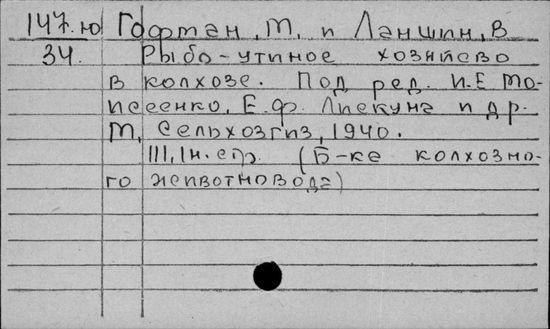 147.ю Гофман, М. и Ланшин, В
34. Рыбо-утиное хозяйство
в колхозе. Под ред. И.Е Мо-
исеенко, Е.Ф. Лискунa и др.
М, Сельхозгиз, 1940.
111, 1н. стр. (Б-ке колхозно-
го животновода)